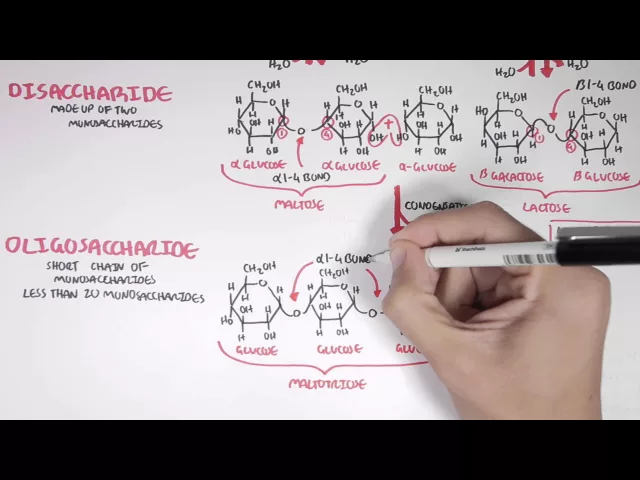 H₂O
H₂O
DISACCHARIDE
MADE UP OF TWO
MONOSACCHARIDES
CH₂OH
CH₂OH
CH₂OH
CH₂OH
CH₂OH
β1-4 BOND
α GLUCOSE
α GLUCOSE
α-GLUCOSE
α1-4 BOND
MALTOSE
β GALACTOSE
β GLUCOSE
LACTOSE
OLIGOSACCHARIDE
SHORT CHAIN OF
MONOSACCHARIDES
LESS THAN 20 MONOSACCHARIDES
α1-4 BOND
CH₂OH
CH₂OH
GLUCOSE
GLUCOSE
MALTOTRIOSE